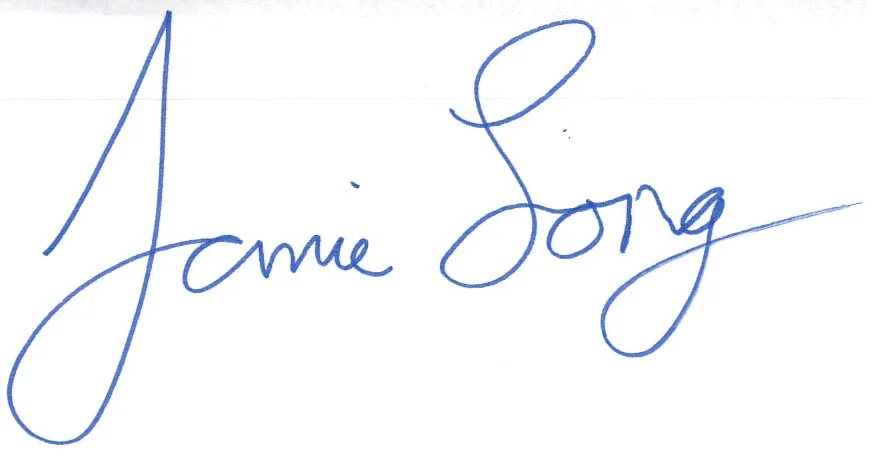 Jamie Long